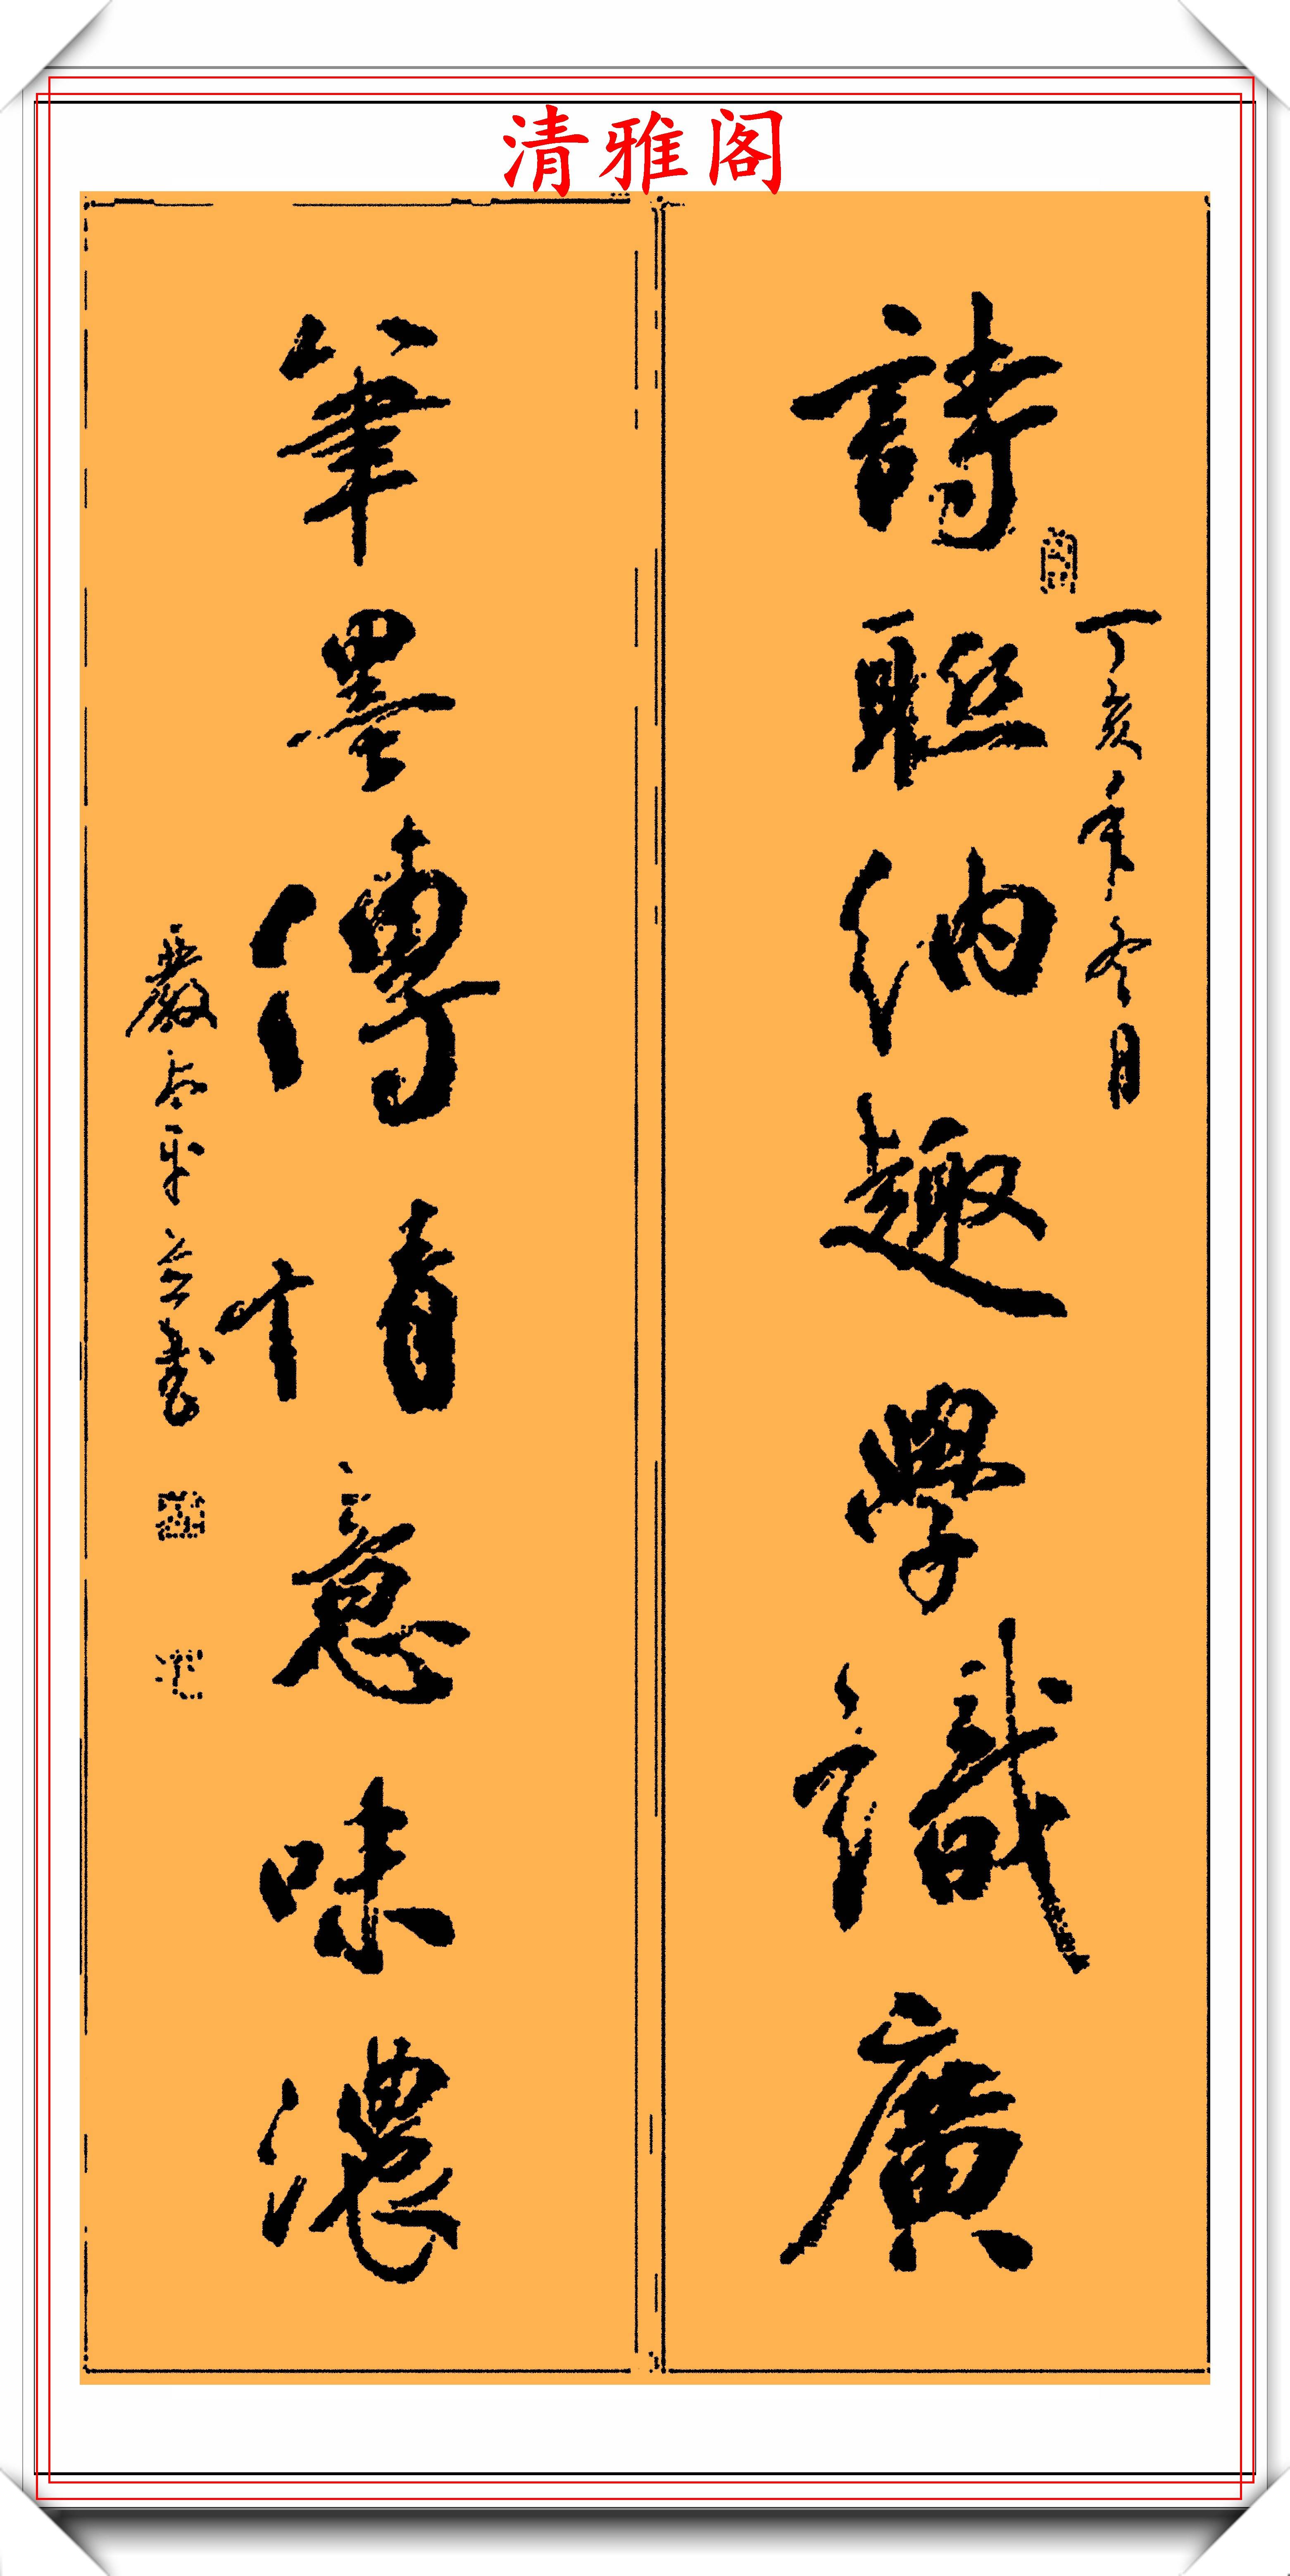 清雅阁
詩聯納趣學識廣
丁亥年冬月
筆墨傳情意味濃
嚴太平并書